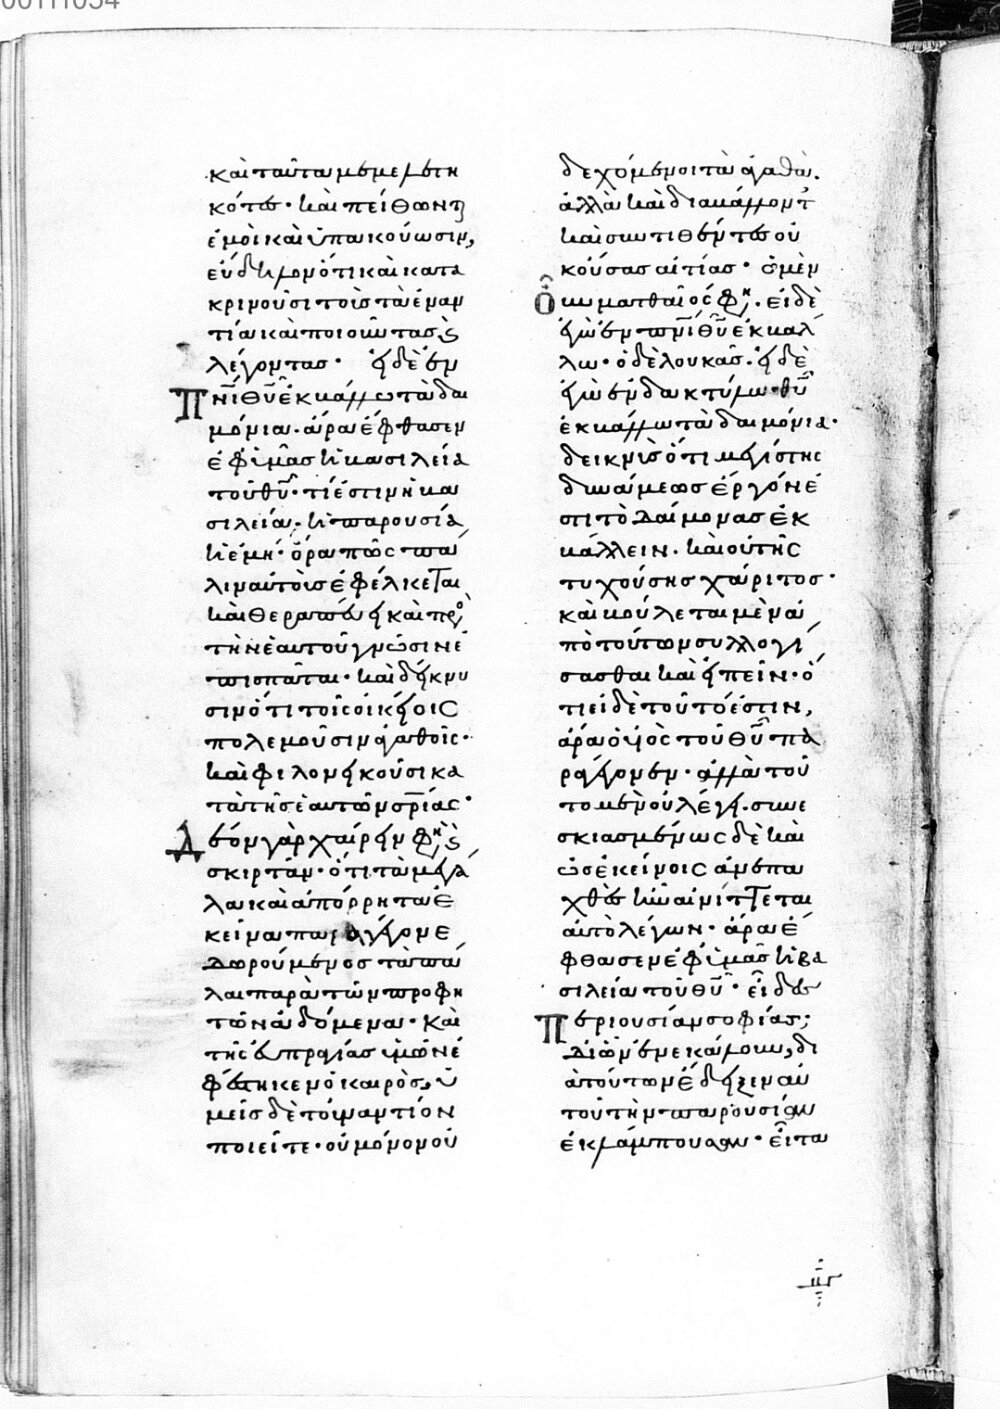 00111054
καὶ ταῦτα μεμελετη
κότες· καὶ πείθωντ
ἐμοὶ καὶ ὑπακούωσιν,
εὔδηλον ὅτι καὶ κατα
κρινοῦσι τοῖς τὰ ἐναν
τία καὶ ποιοῦντας κ
λέγοντας· εἰ δὲ ἐν
πνι θυ ἐκβάλλω τὰ δαι
μόνια· ἄρα ἔφθασεν
ἐφ ὑμᾶς ἡ βασιλεία
τοῦ θυ· τί ἐστιν ἡ βα
σιλεία· ἡ παρουσία
ἡ ἐμή· ὅρα πῶς πά
λιν αὐτοὺς ἐφέλκεται
καὶ θεραπεύει καὶ πρὸ
τὴν ἑαυτοῦ γνῶσιν ἐ
πισπᾶται· καὶ δείκνυ
σιν ὅτι τοῖς οἰκείοις
πολεμοῦσιν ἀγαθοῖς·
καὶ φιλονεικοῦσι κα
τὰ τῆς ἑαυτῶν σρίας·
δέον γὰρ χαίρειν φη κ
σκιρτᾶν· ὅτι τὰ μεγά
λα καὶ ἀπόρρητα ἐ
κεῖνα παρεγενόμε
δωρούμενος τὰ πά
λαι παρὰ τῶν προφη
τῶν ἀδόμενα· καὶ
τῆς εὐπραγίας ὑμῶν ἐ
φέστηκεν ὁ καιρός, ὑ
μεῖς δὲ τοὐναντίον
ποιεῖτε· οὐ μόνον οὐ
δεχόμενοι τὰ ἀγαθά.
ἀλλὰ καὶ διαβάλλοντ
καὶ συντιθέντες οὐ
κ οὔσας αἰτίας· ὁ μὲν
οὖν ματθαῖός φη. εἰ δὲ
ἐγὼ ἐν πνι θυ ἐκβάλ
λω· ὁ δὲ λουκᾶς. εἰ δὲ
ἐγὼ ἐν δακτύλω θυ
ἐκβάλλω τὰ δαιμόνια·
δεικνὺς ὅτι μεγίστης
δυνάμεως ἔργον ἐ
στι τὸ δαίμονας ἐκ
βάλλειν· καὶ οὐ τῆς
τυχούσης χάριτος·
καὶ βούλεται μὲν ἀ
πὸ τούτων συλλογί
σασθαι καὶ εἰπεῖν· ὅ
τι εἰ δὲ τοῦτό ἐστιν,
ἄρα ὁ υἱὸς τοῦ θυ πα
ραγέγονεν· ἀλλὰ τοῦ
το μὲν οὐ λέγει. συνε
σκιασμένως δὲ καὶ
ὡς ἐκείνοις ἀνεπα
χθὲς ἦν αἰνίττεται
αὐτὸ λέγων· ἄρα ἔ
φθασεν ἐφ ὑμᾶς ἡ βα
σιλεία τοῦ θυ· εἶδες
περιουσίαν σοφίας;
δι ὧν ἐνεκάλουν, δι
ὰ τούτων ἔδειξεν αὐ
τοῦ τὴν παρουσίαν
ἐκλάμπουσαν· εἶτα